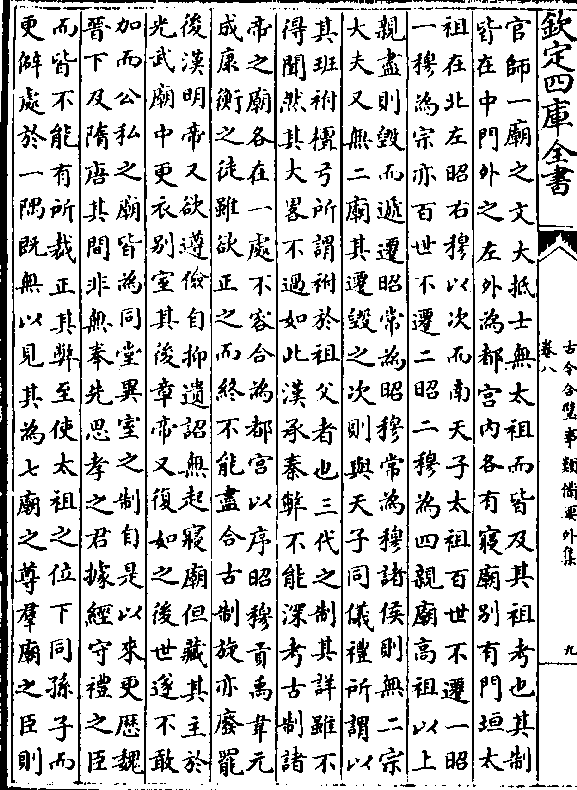 欽定四庫全書
古今合璧事類備要外集
卷八
九
官師一廟之文大抵士無太祖而皆及其祖考也其制
皆在中門外之左外為都宮内各有寢廟别有門垣太
祖在北左昭右穆以次而南天子太祖百世不遷一昭
一穆為宗亦百世不遷二昭二穆為四親廟髙祖以上
親盡則毁而遞遷昭常為昭穆常為穆諸侯則無二宗
大夫又無二廟其遷毁之次則與天子同儀禮所謂以
其班祔檀弓所謂祔於祖父者也三代之制其詳雖不
得聞然其大畧不過如此漢承秦弊不能深考古制諸
帝之廟各在一處不容合為都宫以序昭穆貢禹韋元
成康衡之徒雖欲正之而終不能盡合古制旋亦廢罷
後漢明帝又欲遵儉自抑遺詔無起寢廟但藏其主於
光武廟中更衣别室其後章帝又復如之後世遂不敢
加而公私之廟皆為同堂異室之制自是以來更歴魏
晉下及隋唐其間非無奉先思孝之君據經守禮之臣
而皆不能有所裁正其弊至使太祖之位下同孫子而
更僻處於一隅既無以見其為七廟之尊羣廟之臣則